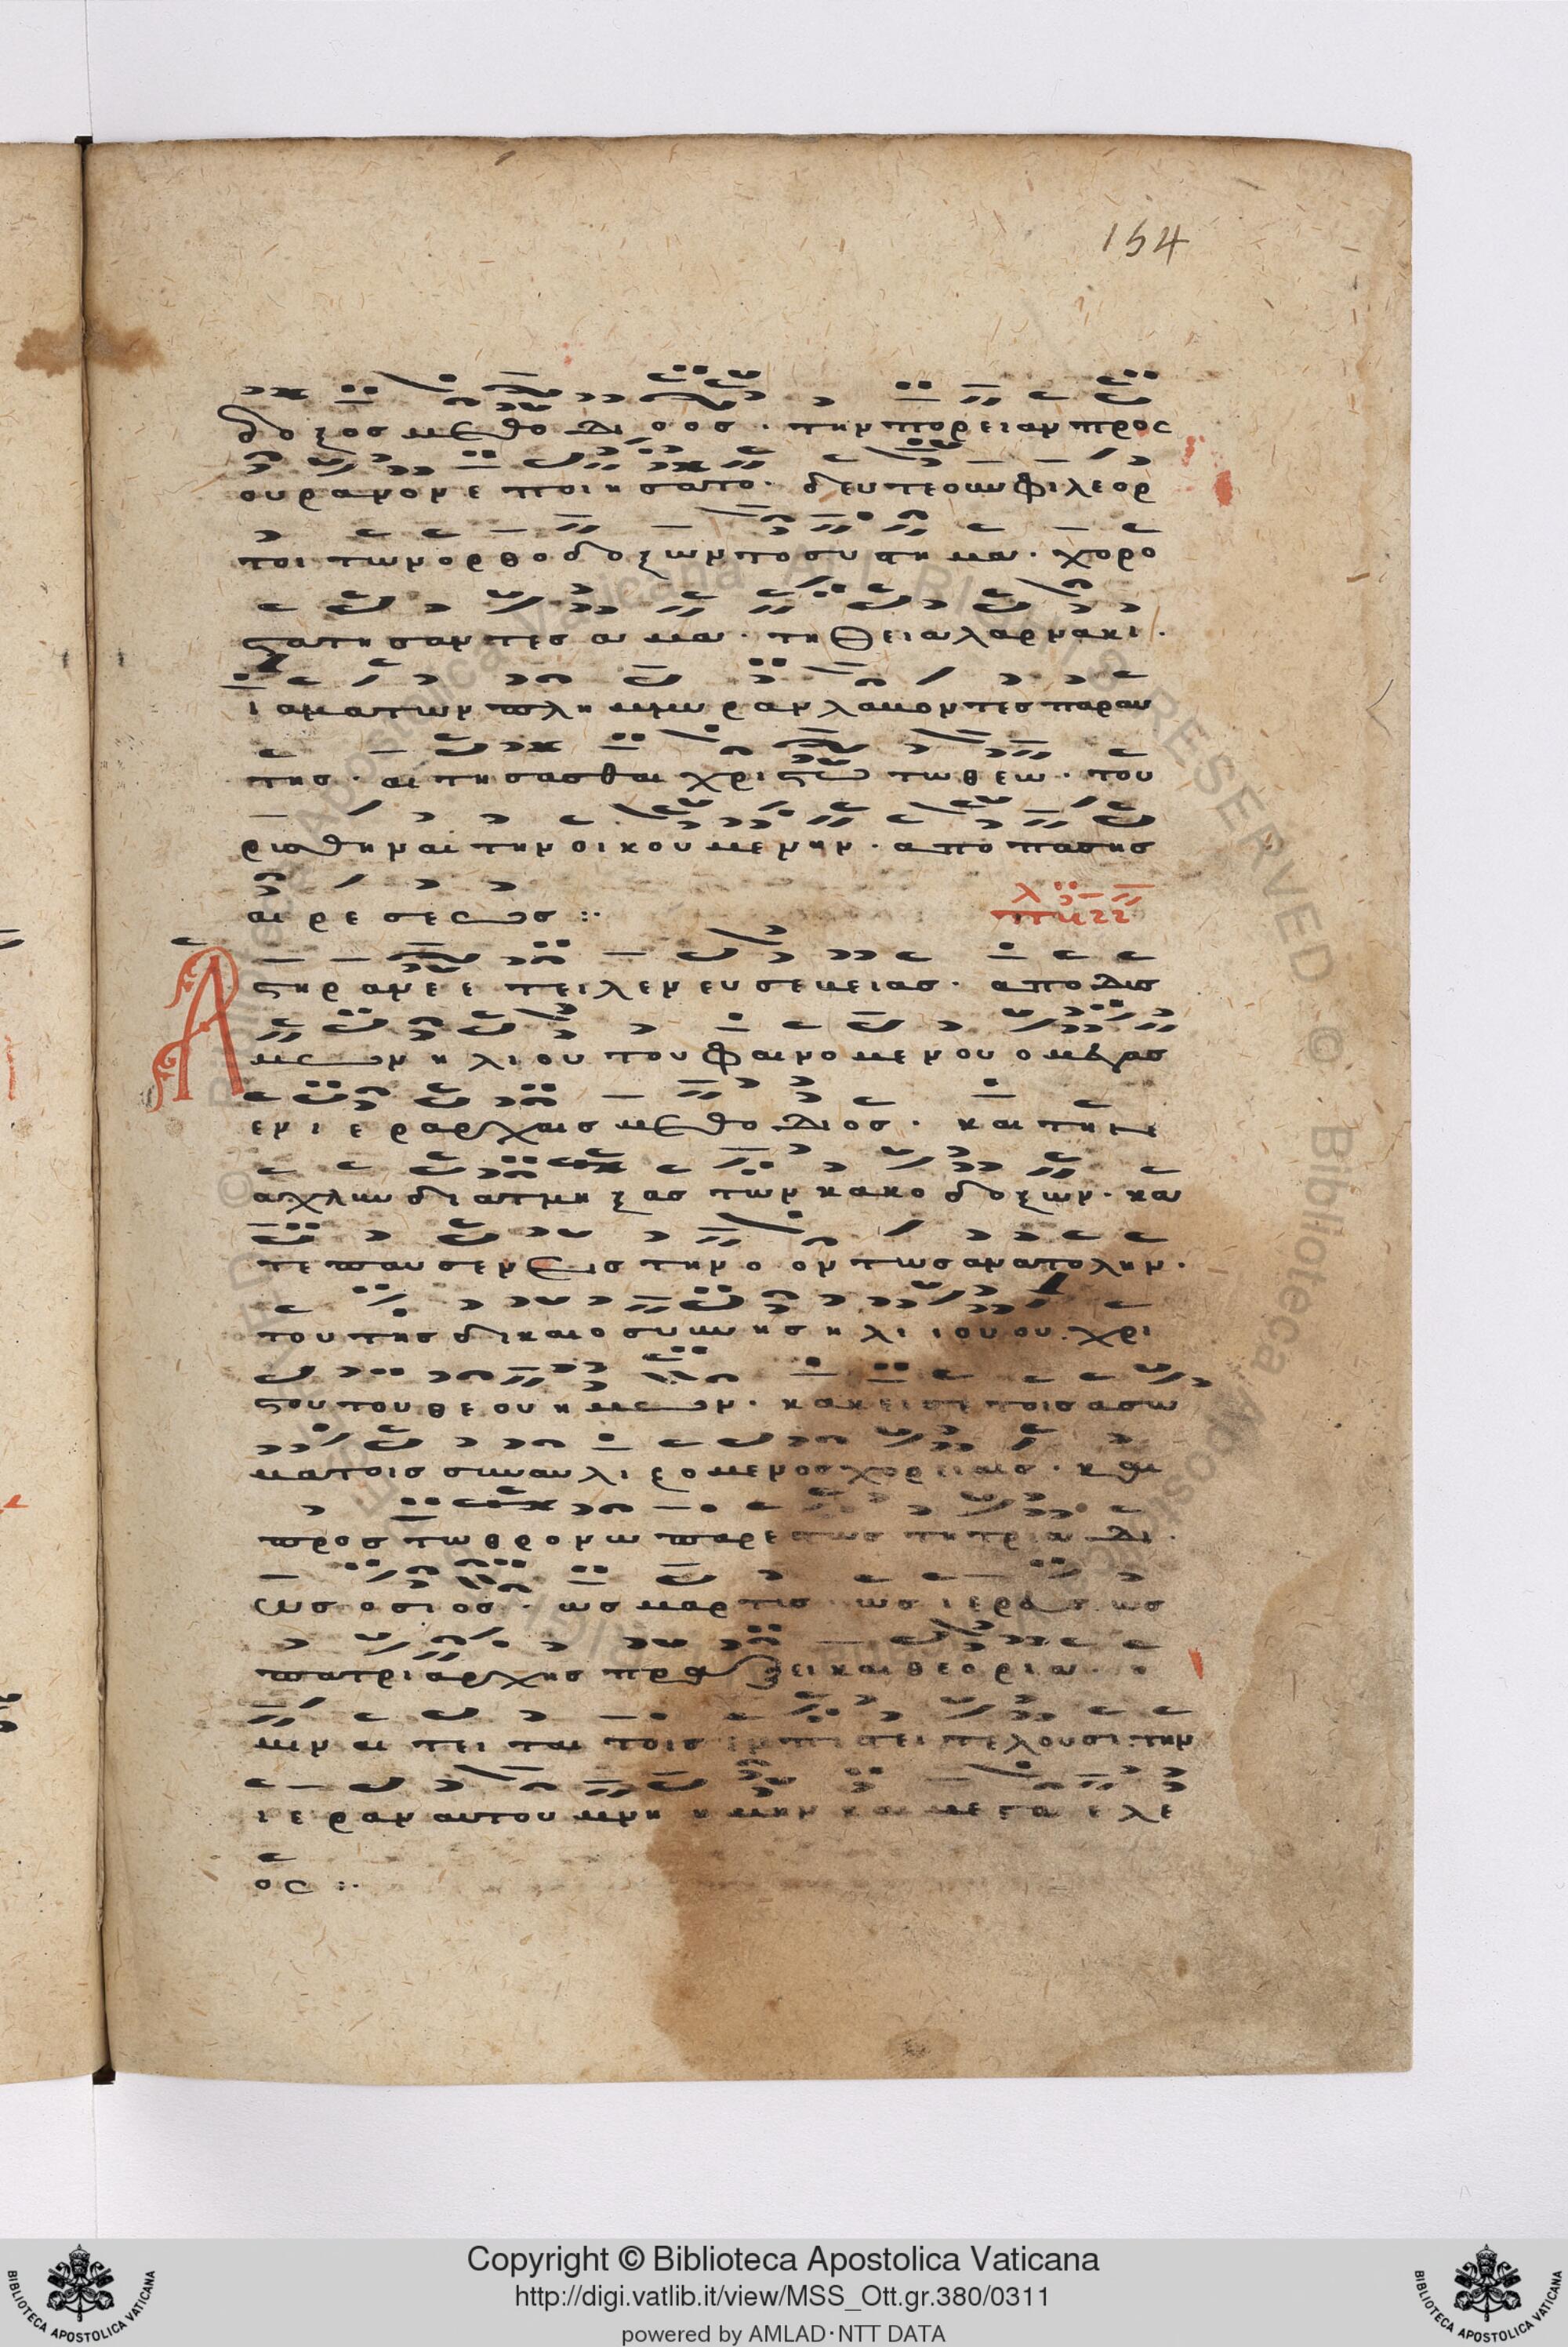 154
δοξος μεθοδιοος · την πορειαν προς
ουρανον εποιησατο · δευτε ουν φιλεορ
τοι των ορθοδοξων το συστημα · χορο
στατησαντες αμα · τη θεια λαρνακι ·
ιαματων πλημμυραν λαβοντες παρ αυ
της · αιτησασθαι χριστω τω θεω · του
ρυσθηναι την οικουμενην · απο πασης
αιρεσεως :·
Αστηρ ανεετειλεν ευσεβειας · απο δυσ
μων ηλιου του φαινομενου ο μεγας
εν ιεραρχαις μεθοδιος · και την
αχλυν διατμηξας των κακοδοξων · κα
τεπαυσεν εις την οοντως ανατολην ·
του της δικαιοσυνης ηλιιουου · χρι
στου του θεου ημων · κακεισε τοις ασω
ματοις συναυλιζομενος χορειαις · και
προς τω θρονω παρεστως τη τριαδι ·
ως οσιος · ως μαρτυς · ως ιερευς ως
πατριαρχης πραξει και θεορια ·
μιν αιτειται τοις εν πιστει τελουσι την
ιεραν αυτου μνηημην και μεγα ελε
ος :·
Copyright © Biblioteca Apostolica Vaticana
http://digi.vatlib.it/view/MSS_Ott.gr.380/0311
powered by AMLAD·NTT DATA
BIBLIOTECA APOSTOLICA VATICANA
BIBLIOTECA APOSTOLICA VATICANA